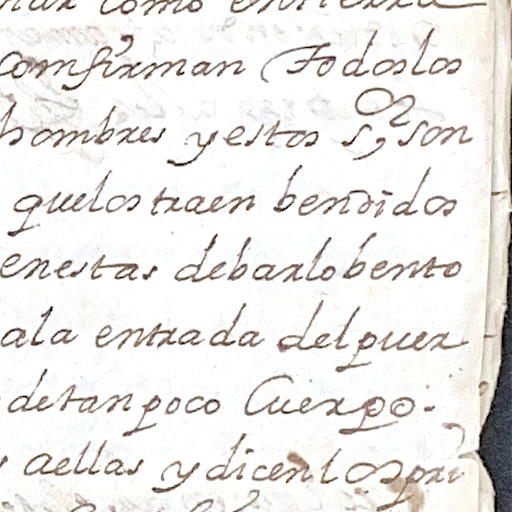 como entierra
comfirman Todos los
hombres y estos s.res son
que los traen bendidos
en estas de barlobento
a la entrada del puer
de tan poco Cuerpo.
aellas y dicen los pri